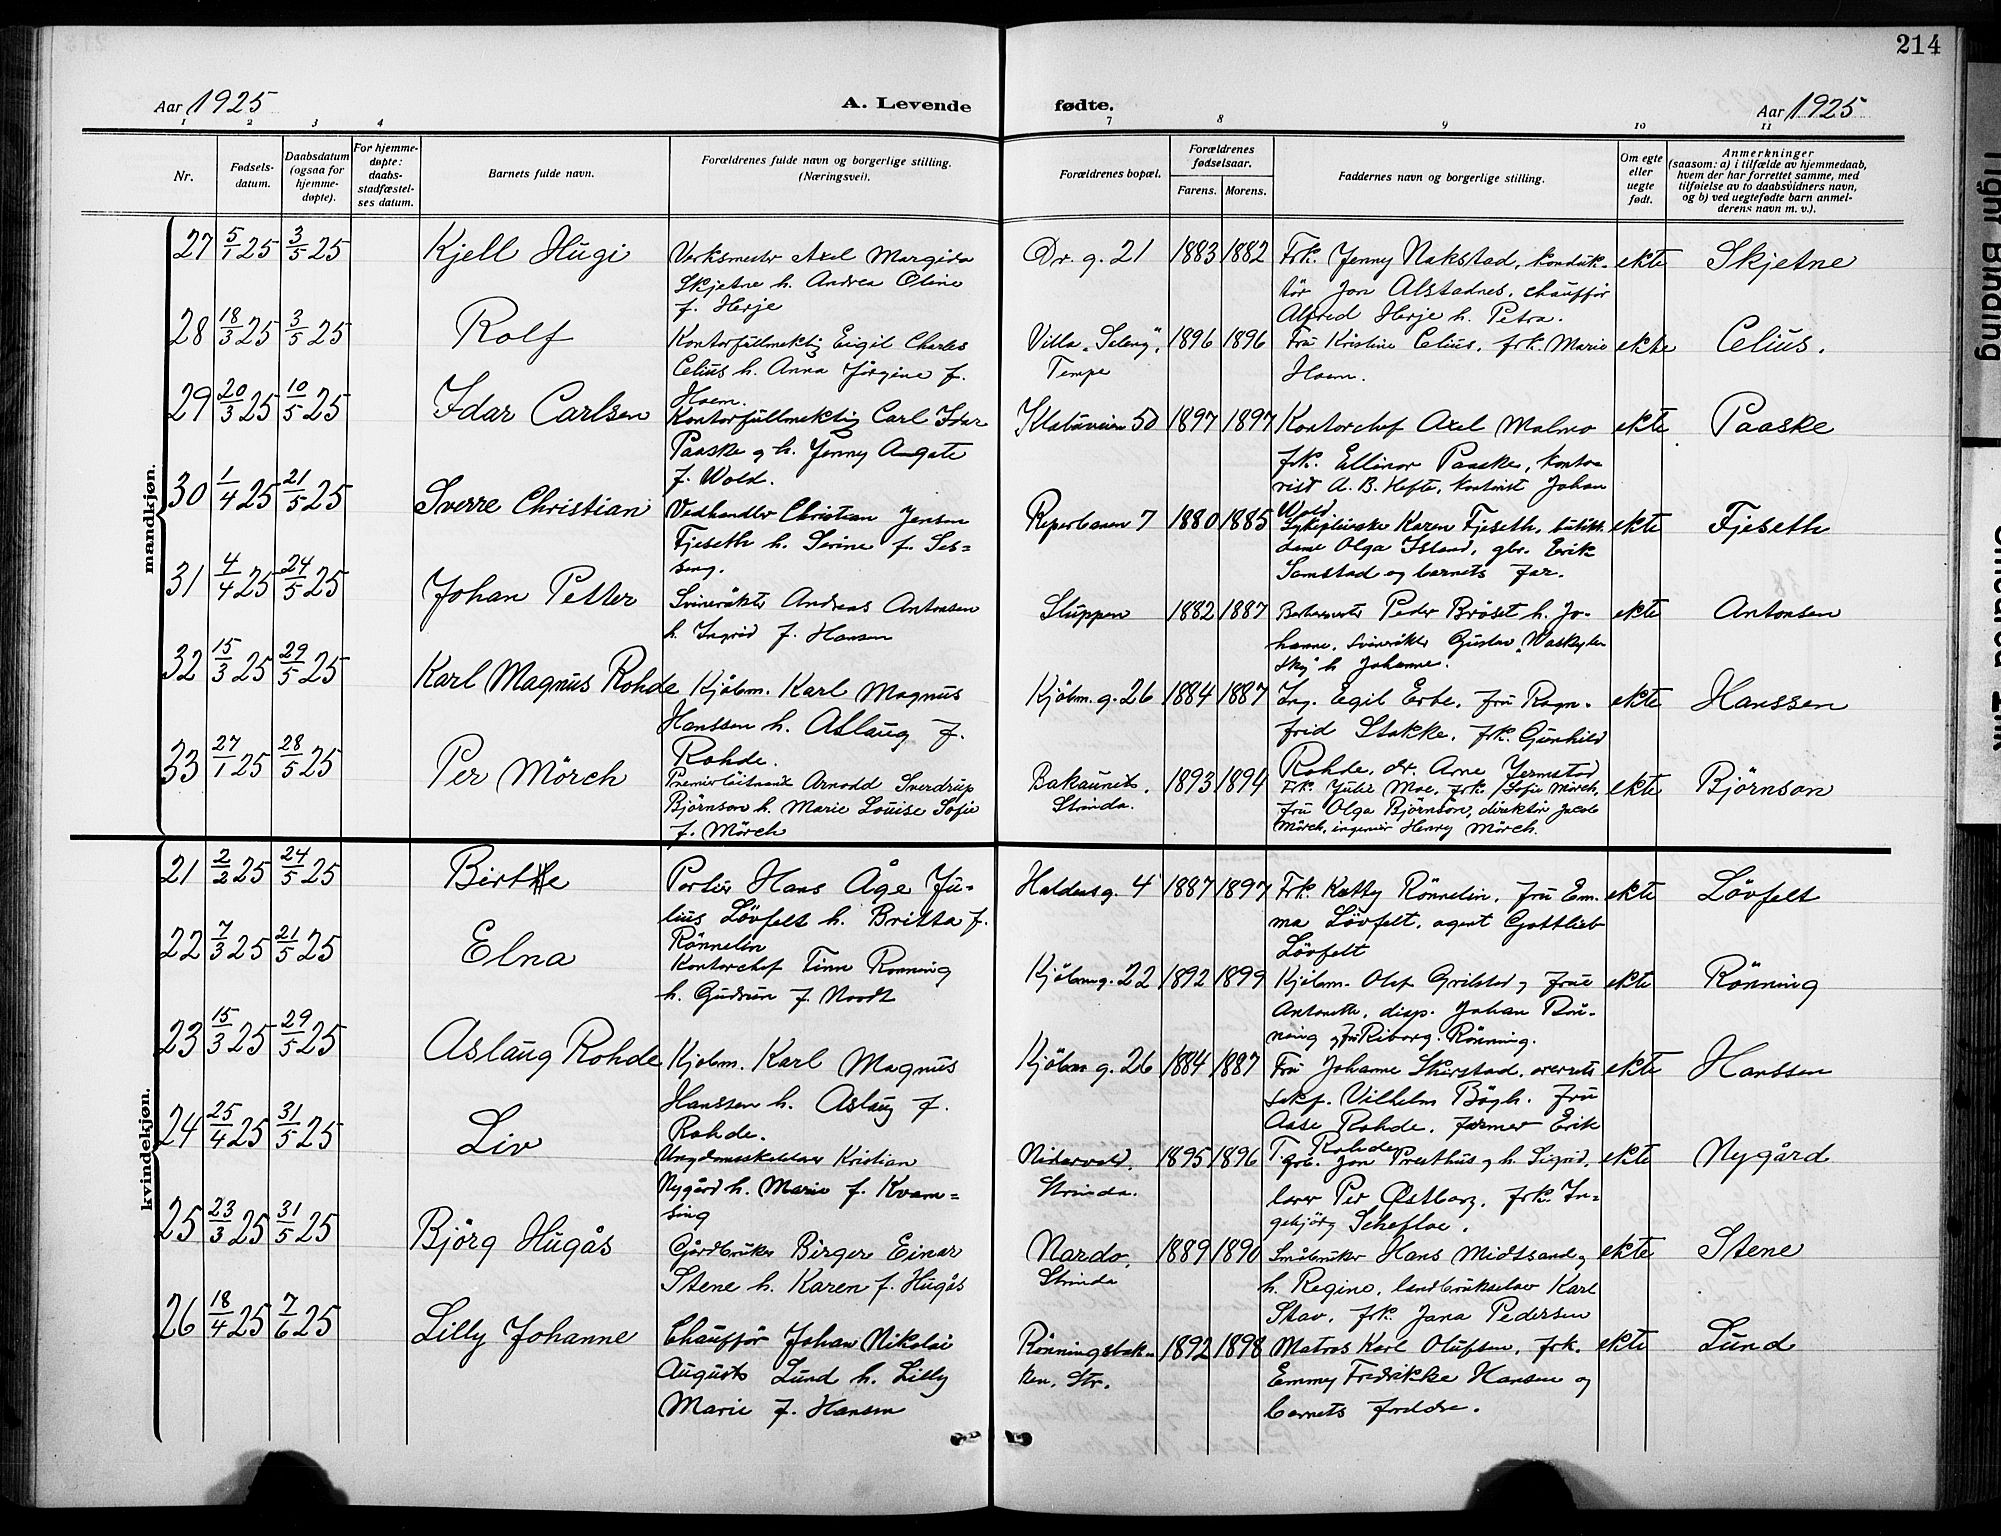 214
Aar 1925
A. Levende fødte.
Aar 1925
1 2 3 4 7 8 9 10 11
Nr.
Fødsels-
datum.
Daabsdatum
(ogsaa for
hjemme-
døpte).
For hjemme-
døpte:
daabs-
stadfæstel-
ses datum.
Barnets fulde navn.
Forældrenes fulde navn og borgerlige stilling.
(Næringsvei).
Forældrenes bopæl.
Forældrenes
fødselsaar.
Farens. Morens.
Faddernes navn og borgerlige stilling.
Om egte
eller
uegte
født.
Anmerkninger
(saasom: a) i tilfælde av hjemmedaab,
hvem der har forrettet samme, med
tilføielse av to daabsvidners navn,
og b) ved uegtefødte barn anmel-
derens navn m. v.).
mandkjøn.
27 5/1 25 3/5 25 Kjell Hugi
Verksmester Axel Margido
Skjetne h. Andrea Oline
f. Herje
Dr. g. 21 1883 1882
Frk. Jenny Nakstad, konduk-
tör Jon Alstadnes, chaufför
Alfred Herje h. Petra.
ekte Skjetne
28 18/3 25 3/5 25 Rolf
Kontorfullmektig Eigil Charles
Celius h. Anna Jörgine f.
Hoem.
Villa "Seleng",
Tempe
1896 1896
Fru Kristine Celius, frk. Marie
Hoem.
ekte Celius.
29 20/3 25 10/5 25 Idar Carlsen
Kontorfullmektig Carl Idar
Paaske og h. Jenny Agate
f. Wold.
Klæbuveien 50 1897 1897
Kontorchef Axel Malmo
frk. Ellinor Paaske, konto-
rist A. B. Hefte, kontorist Johan
Wold
ekte Paaske
30 1/4 25 21/5 25 Sverre Christian
Vedhandler Christian Jensen
Fjeseth h. Serine f. Ses-
seng.
Reperbanen 7 1880 1885
Sykepleierske Karen Fjeseth, butikk-
dame Olga Island, gbr. Erik
Samstad og barnets far.
ekte Fjeseth
31 4/4 25 24/5 25 Johan Petter
Svinerökter Andreas Antonsen
h. Ingrid f. Hansen
Sluppen 1882 1887
Peder Bröset h. Jo-
hanne, svinerökter Gustav
h Johanne.
ekte Antonsen
32 15/3 25 29/5 25 Karl Magnus Rohde
Kjöbm. Karl Magnus
Hanssen h. Aslaug f.
Rohde.
Kjöbm. g. 26 1884 1887
Ing. Egil Erbe, fru Ragn-
frid Stokke, frk. Gunhild
Rohde, dr. Arne Jermstad
ekte Hanssen
33 27/1 25 28/5 25 Per Mörch
Premierlöitnant Arnodd Sverdrup
Björnson h. Marie Louise Sofie
f. Mörch
Bakaunet,
Strinda.
1893 1894
Frk. Julie Moe, frk. Sofie Mörch,
fru Olga Björnson, direktör Jacob
Mörch, ingeniör Henry Mörch.
ekte Björnson
kvindekjøn.
21 2/2 25 24/5 25 Birthe
Portier Hans Åge Ju-
lius Lövfelt h. Britta f.
Rönnelin
Haldensg. 4 1887 1897
Frk. Katty Rönnelin, fru Em-
ma Lövfelt, agent Gottlieb
Lövfelt
ekte Lövfelt
22 7/3 25 21/5 25 Elna
Kontorchef Finn Ronning
h. Gudrun f. Noodt
Kjöbmg. 22 1892 1899
Kjöbm. Olef Grilstad og frue
Antonette, disp. Johan Rön-
ning og fru Riborg Rönning.
ekte Rönning
23 15/3 25 29/5 25 Aslaug Rohde
Kjöbm. Karl Magnus
Hanssen h. Aslaug f.
Rohde.
Kjöbm g. 26 1884 1887
Fru Johanne Skirstad, overrets
sakf. Vilhelm Bögh. Fru
Aase Rohde, farmer Erik
T. Rohde
ekte Hanssen
24 25/4 25 31/5 25 Liv
Ungdomsskolelærer Kristian
Nygård h. Marie f. Kvam-
sing
Nidarvold,
Strinda.
1895 1896
gbr. Jon Presthus og h. Sigrid,
lærer Per Østborg, frk. In-
gebjörg Schefloe.
ekte Nygård
25 23/3 25 31/5 25 Björg Hugås
Gårdbruker Birger Einar
Stene h. Karen f. Hugås
Nardo,
Strinda
1889 1890
Småbruker Hans Midtsand og
h. Regine, landbrukselev Karl
Stav, frk. Jana Pedersen
ekte Stene
26 18/4 25 7/6 25 Lilly Johanne
Chaufför Johan Nikolai
August Lund h. Lilly
Marie f. Hansen
Rönningsbak-
ken, Str.
1892 1898
Matros Karl Olufsen, frk.
Emmy Fredrikke Hansen og
barnets foreldre.
ekte Lund
Tight Binding